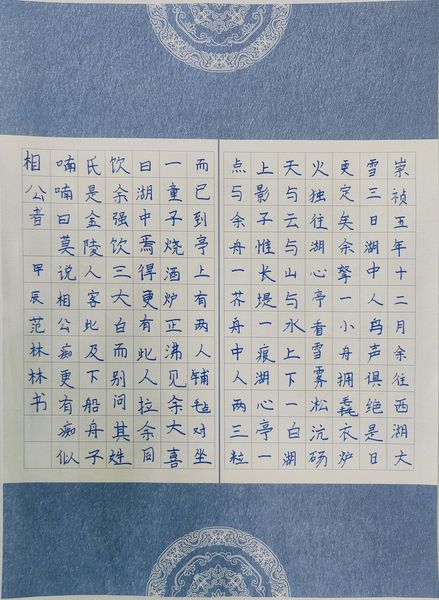 崇祯五年十二月余往西湖大
雪三日湖中人鸟声俱绝是日
更定矣余拏一小舟拥毳衣炉
火独往湖心亭看雪雾凇沆砀
天与云与山与水上下一白湖
上影子惟长堤一痕湖心亭一
点与余舟一芥舟中人两三粒
而已到亭上有两人铺毡对坐
一童子烧酒炉正沸见余大喜
曰湖中焉得更有此人拉余同
饮余强饮三大白而别问其姓
氏是金陵人客此及下船舟子
喃喃曰莫说相公痴更有痴似
相公者 甲辰范林林书